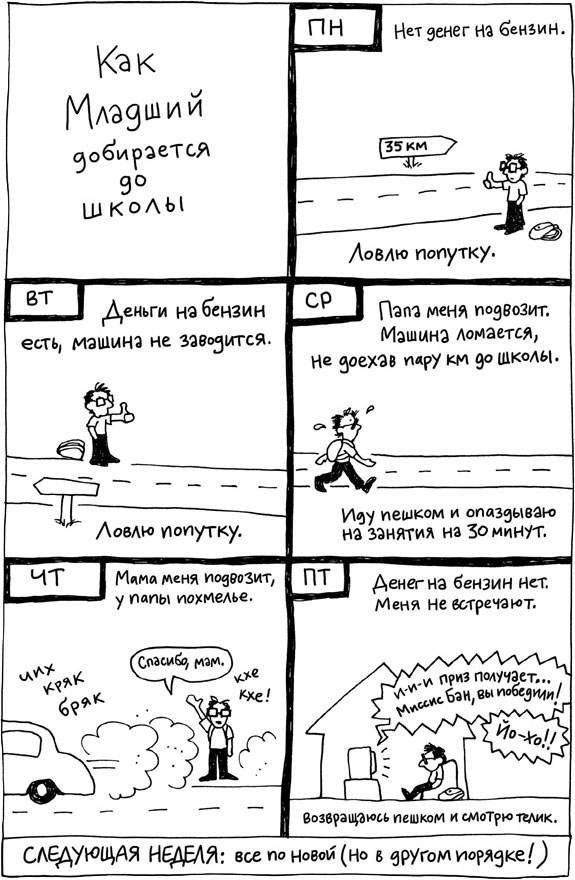 Как
Младший
добирается
до
школы
ПН
Нет денег на бензин.
35 км
Ловлю попутку.
ВТ
Деньги на бензин
есть, машина не заводится.
Ловлю попутку.
СР
Папа меня подвозит.
Машина ломается,
не доехав пару км до школы.
Иду пешком и опаздываю
на занятия на 30 минут.
ЧТ
Мама меня подвозит,
у папы похмелье.
чих
кряк
бряк
Спасибо, мам.
кхе
кхе!
ПТ
Денег на бензин нет.
Меня не встречают.
И-и-и приз получает...
Миссис Бан, вы победили!
Йо-хо!!
Возвращаюсь пешком и смотрю телик.
СЛЕДУЮЩАЯ НЕДЕЛЯ: все по новой (но в другом порядке!)